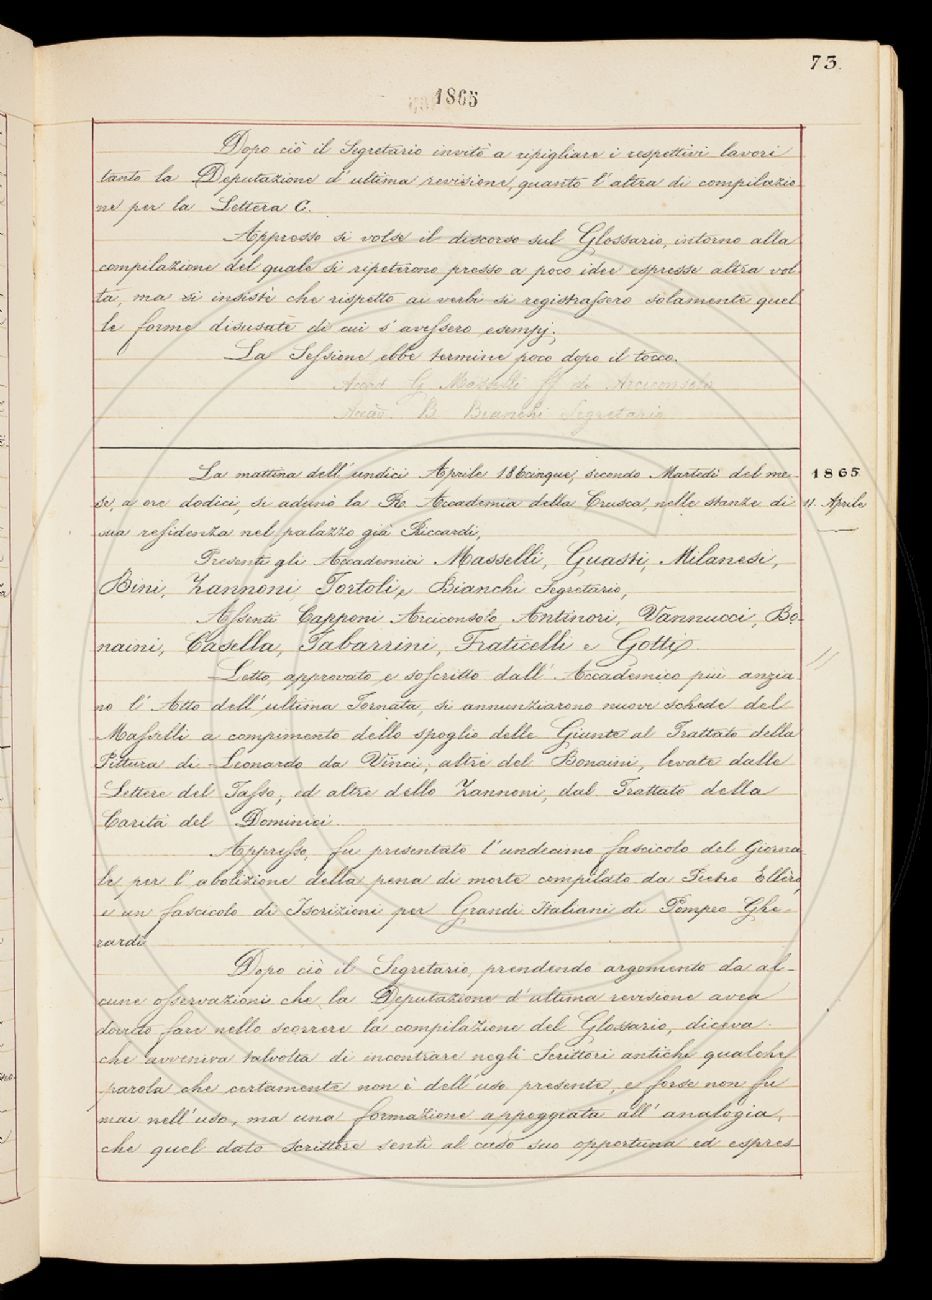 73.
1865
Dopo ciò il Segretario invitò a ripigliare i respettivi lavori
tanto la Deputazione d'ultima revisione, quanto l'altra di compilazio
ne per la Lettera C.
Appresso si volse il discorso sul Glossario, intorno alla
compilazione del quale si ripeterono presso a poco idee espresse altra vol
ta, ma si insistè che rispetto ai verbi si registrassero solamente quel
le forme disusate di cui s'avessero esempj.
La Sessione ebbe termine poco dopo il tocco.
Accad. G. Masselli ff. di Arciconsolo
Accad. B. Bianchi Segretario
La mattina dell'undici Aprile 186cinque, secondo Martedì del me-
se, a ore dodici, si adunò la R. Accademia della Crusca, nelle stanze di
sua residenza nel palazzo già Riccardi,
1865
11. Aprile
Presenti gli Accademici Masselli, Guasti, Milanesi,
Bini, Zannoni Tortoli, e Bianchi Segretario,
Assenti Capponi Arciconsolo, Antinori, Vannucci, Bo-
naini, Casella, Tabarrini, Fraticelli e Gotti.
Letto, approvato e soscritto dall'Accademico più anzia
no l'Atto dell'ultima Tornata, si annunziarono nuove schede del
Masselli a compimento dello spoglio delle Giunte al Trattato della
Pittura di Leonardo da Vinci; altre del Bonaini, levate dalle
Lettere del Tasso; ed altre dello Zannoni, dal Trattato della
Carità del Dominici.
Appresso, fu presentato l'undecimo fascicolo del Giorna
le per l'abolizione della pena di morte compilato da Pietro Ellero,
e un fascicolo di Iscrizioni per Grandi Italiani di Pompeo Ghe-
rardi
Dopo ciò il Segretario, prendendo argomento da al-
cune osservazioni che la Deputazione d'ultima revisione avea
dovuto fare nello scorrere la compilazione del Glossario, diceva
che avveniva talvolta di incontrare negli Scrittori antichi qualche
parola che certamente non è dell'uso presente, e forse non fu
mai nell'uso, ma una formazione appoggiata all'analogia,
che quel dato scrittore sentì al caso suo opportuna ed espres